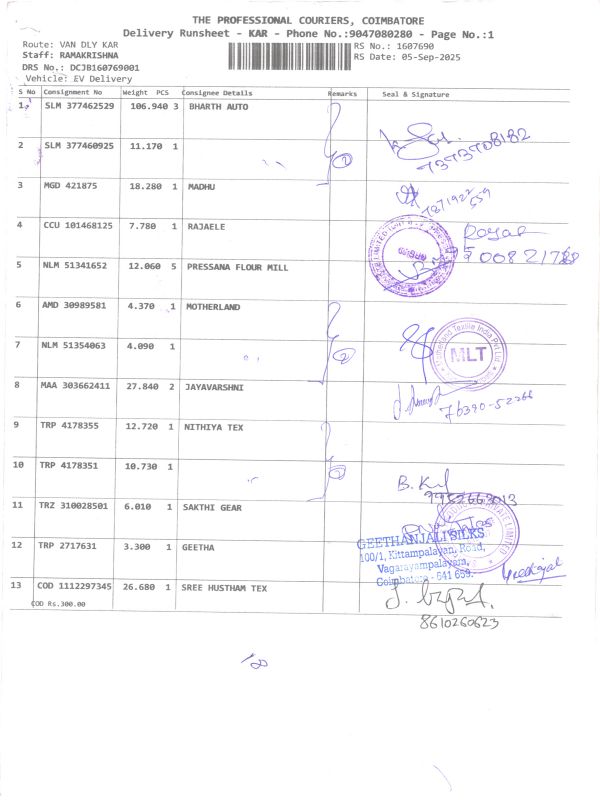 THE PROFESSIONAL COURIERS, COIMBATORE
Delivery Runsheet - KAR - Phone No.:9047080280 - Page No.:1
Route: VAN DLY KAR
RS No.: 1607690
Staff: RAMAKRISHNA
RS Date: 05-Sep-2025
DRS No.: DCJB160769001
Vehicle: EV Delivery
S No Consignment No Weight PCS Consignee Details Remarks Seal & Signature
1 SLM 377462529 106.940 3 BHARTH AUTO
7373708182
2 SLM 377460925 11.170 1 2
3 MGD 421875 18.280 1 MADHU
4 CCU 101468125 7.780 1 RAJAELE
5 NLM 51341652 12.060 5 PRESSANA FLOUR MILL
6 AMD 30989581 4.370 1 MOTHERLAND
7 NLM 51354063 4.090 1 2
Motherland Textile India Pvt Ltd
MLT
8 MAA 303662411 27.840 2 JAYAVARSHNI
76390-52266
9 TRP 4178355 12.720 1 NITHIYA TEX
10 TRP 4178351 10.730 1
9952663013
11 TRZ 310028501 6.010 1 SAKTHI GEAR
12 TRP 2717631 3.300 1 GEETHA
GEETHANJALI SILKS
100/1, Kittampalayan, Road,
Vagarayampalayam,
Coimbatore - 641 659.
13 COD 1112297345 26.680 1 SREE HUSTHAM TEX
COD Rs.300.00
8610260623